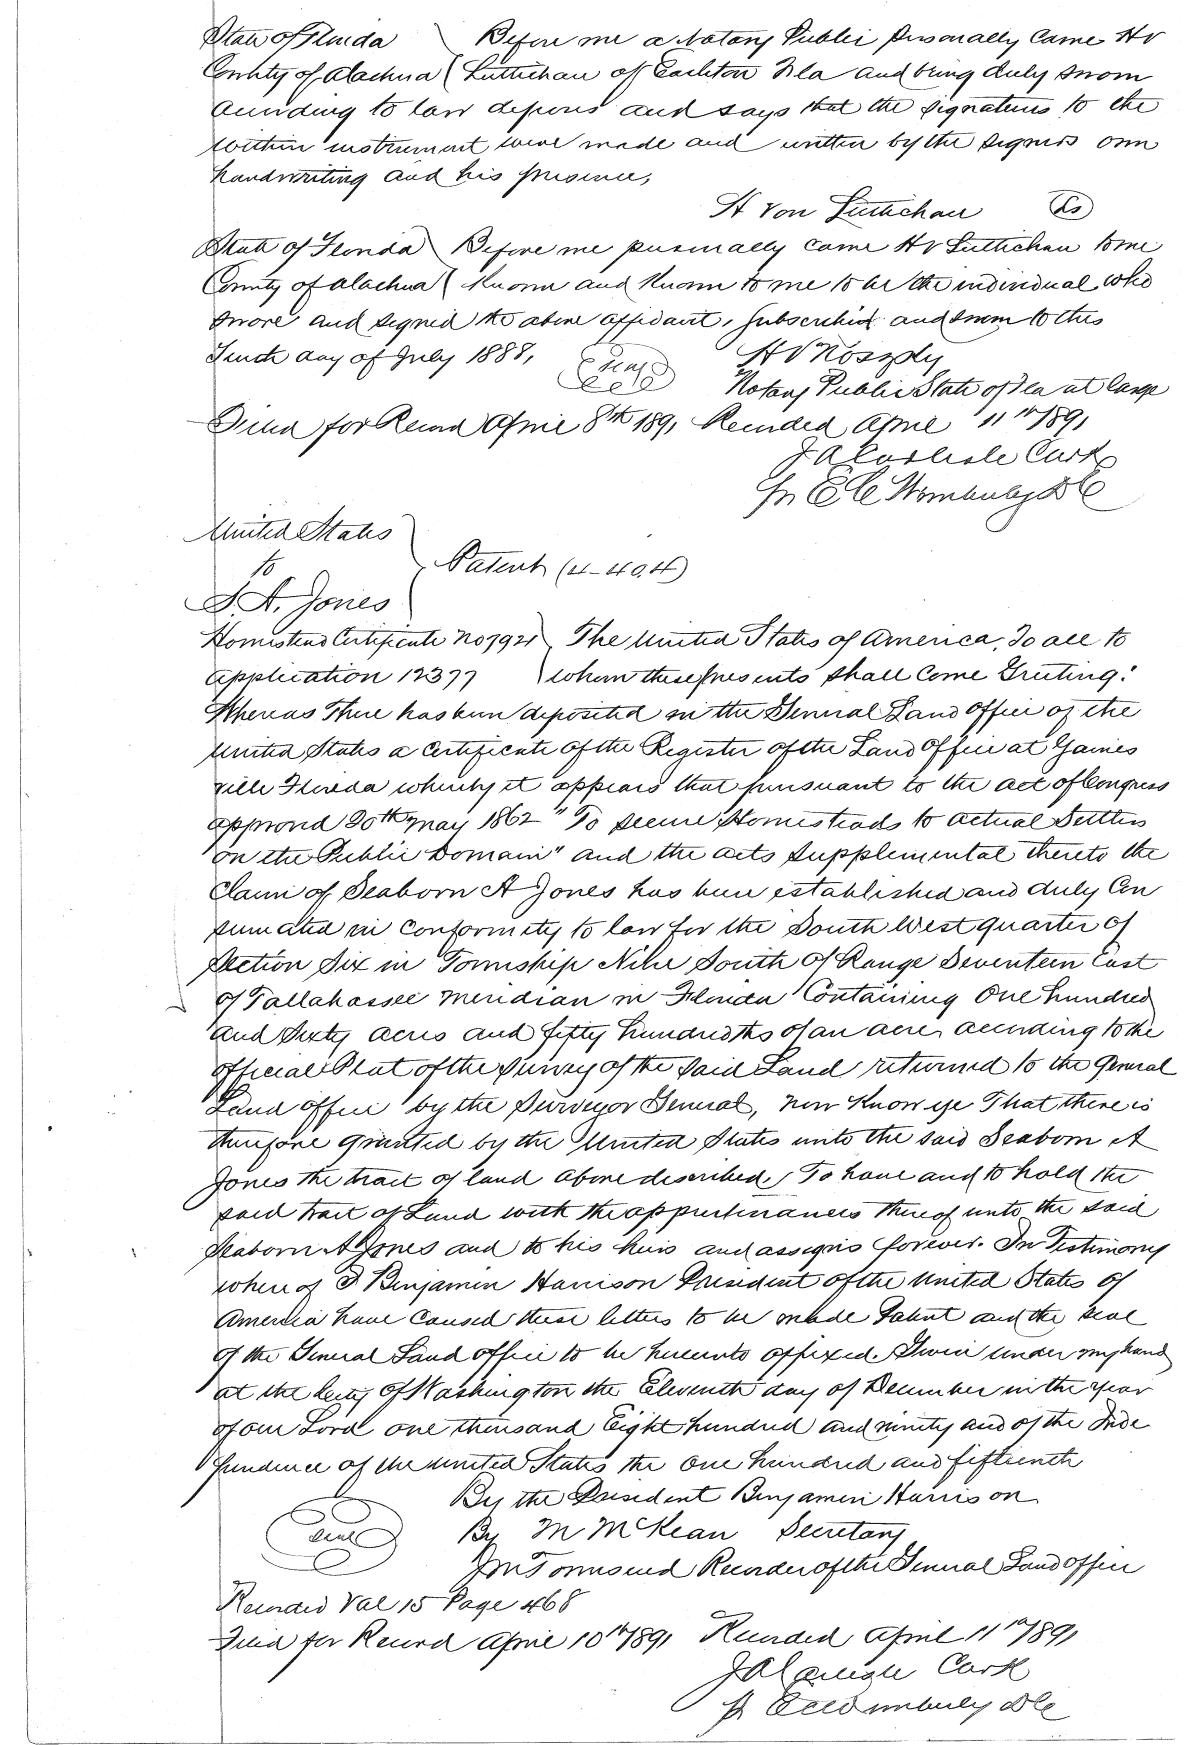 State of Florida Before me a Notary Public personally came H v
County of Alachua Luttichau of Earleton Fla and being duly sworn
according to law deposes and says that the signatures to the
within instrument were made and written by the signers own
handwriting and his presence,
H von Luttichau Ls
State of Florida Before me personally came H v Luttichau to me
County of Alachua Known and Known to me to be the individual who
swore and signed the above affidavit, Subscribed and sworn to this
Tenth day of July 1888,
Seal
Notary Public State of Fla at large
Filed for Record April 8th 1891 Recorded April 11th 1891
J A Carlisle Clerk
United States
to
S. A. Jones
Patent (4-404)
Homestead Certificate No 7921 The United States of America, To all to
Application 12377 whom these presents shall Come Greeting:
Whereas There has been deposited in the General Land Office of the
United States a Certificate of the Register of the Land Office at Gaines
ville Florida whereby it appears that pursuant to the act of Congress
approved 20th May 1862 "To secure Homesteads to actual Settlers
on the Public Domain" and the acts Supplemental thereto the
Claim of Seaborn A Jones has been established and duly Con
sumated in Conformity to law for the South West quarter of
Section Six in Township Nine South of Range Seventeen East
of Tallahassee Meridian in Florida Containing One hundred
and Sixty acres and fifty hundredths of an acre, according to the
Official Plat of the Survey of the Said Land returned to the General
Land office by the Surveyor General, Now Know ye That there is
therefore granted by the United States unto the said Seaborn A
Jones the tract of land above described, To have and to hold the
said tract of Land with the appurtinances thereof unto the said
Seaborn A Jones and to his heirs and assigns forever. In Testimony
where of I Benjamin Harrison President of the United States of
America have caused these letters to be made Patent and the seal
of the General Land office to be hereunto affixed. Given under my hand
at the City of Washington the Eleventh day of December in the year
of our Lord one thousand Eight hundred and ninety and of the Inde
pendence of the United States the One hundred and fifteenth
By the President Benjamin Harrison
Seal By M McKean Secretary
J M Townsend Recorder of the General Land Office
Recorded Vol 15 Page 468
Filed for Record April 10th 1891 Recorded April 11th 1891
J A Carlisle Clerk